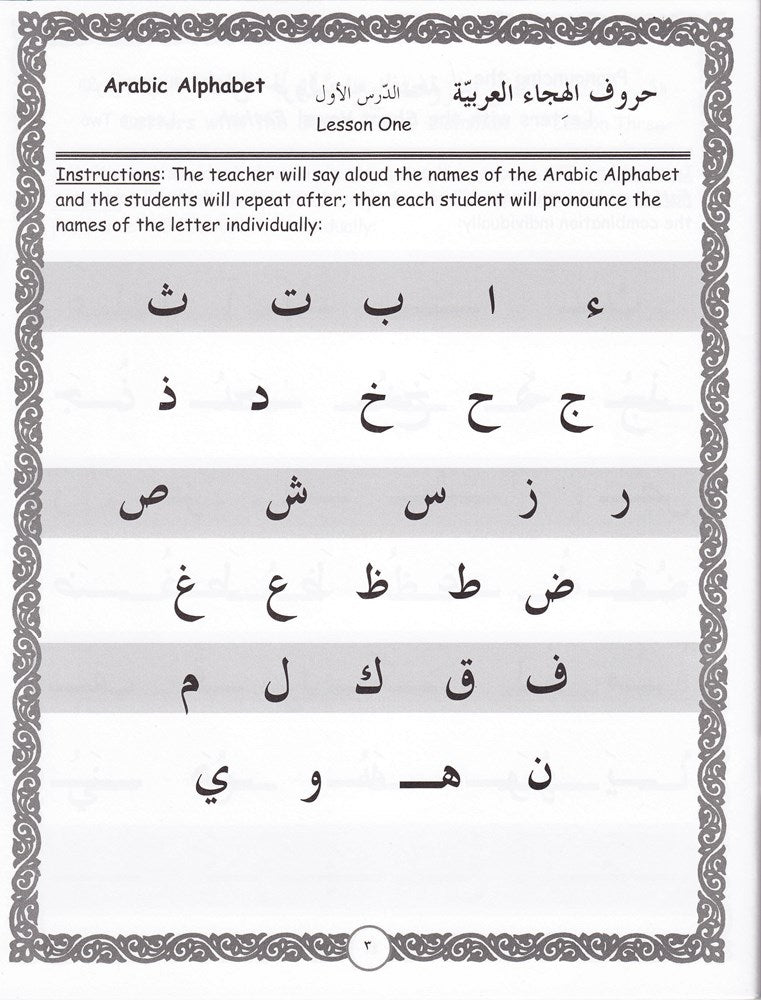 Arabic Alphabet الدّرس الأول حروف الهِجاء العربيّة
Lesson One
Instructions: The teacher will say aloud the names of the Arabic Alphabet
and the students will repeat after; then each student will pronounce the
names of the letter individually:
ء ا ب ت ث
ج ح خ د ذ
ر ز س ش ص
ض ط ظ ع غ
ف ق ك ل م
ن هـ و ي
٣